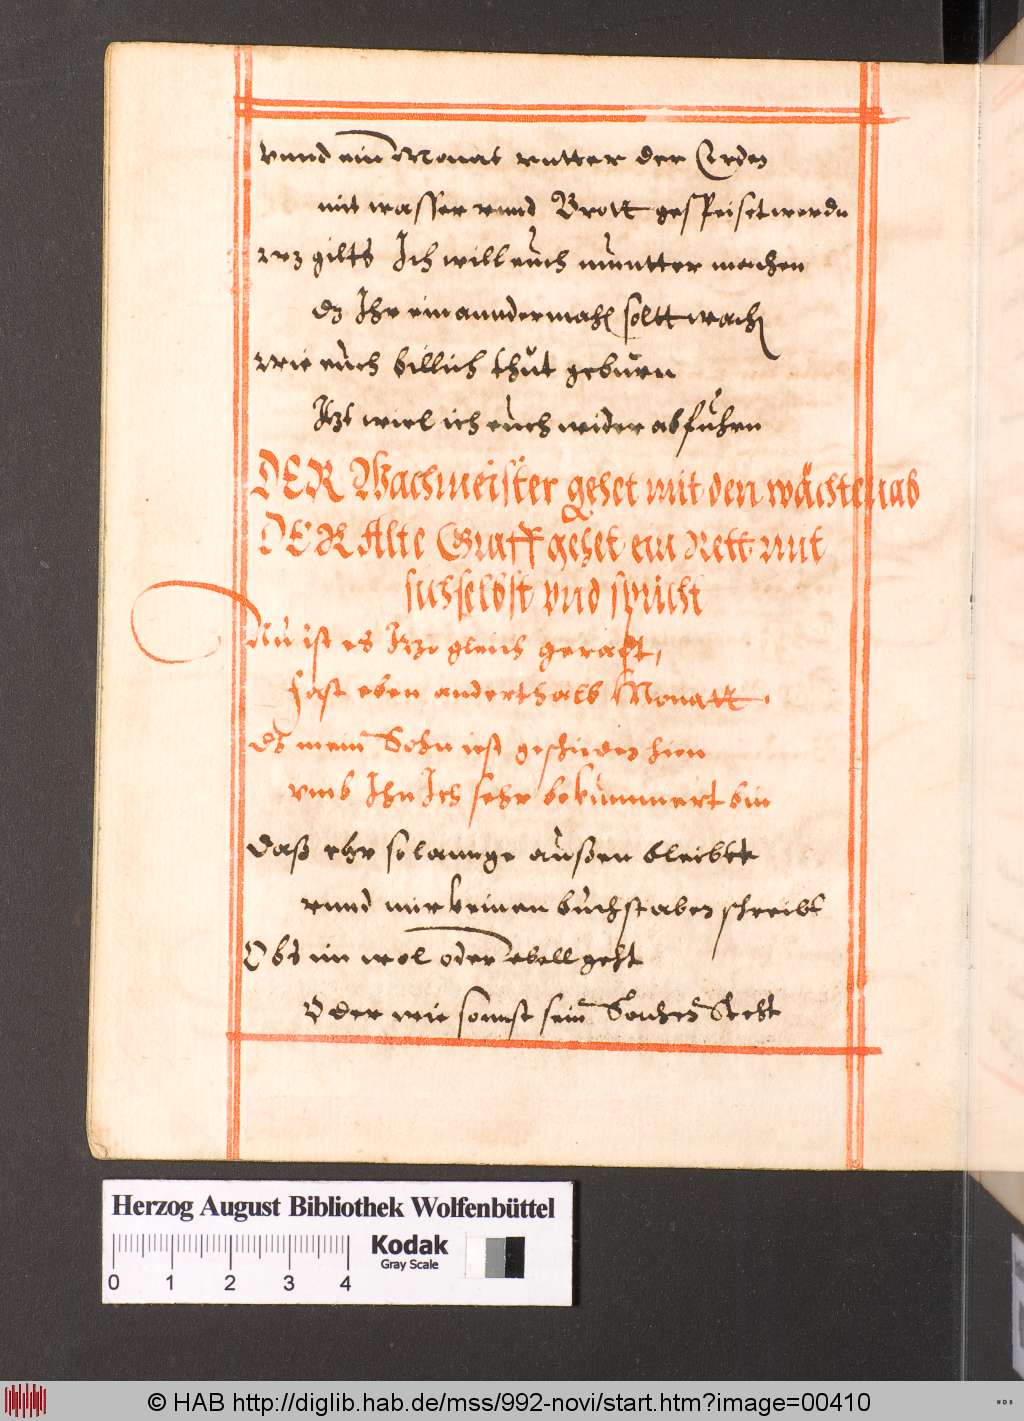 vnnd ein Monat vntter der Erden
mit wasser vnnd Brott gespeiset werdn
Wz gilts Ich will euch munntter machen
dz Ihr ein anndermahl soltt wachen
Wie euch billich thut geburn
Itzt wiel ich euch wider abfuhrn
DER Wachmeister gehet mit den wächtern ab
DER Alte Graff gehet ein Rett mit
sich selbst vnd spricht
Nu ist es Itzo gleich geradt,
Fast eben anderthalb Monatt.
Ds mein Sohn ist geschieden hien
vmb Ihn Ich sehr bekummert bin
Daß ehr so lannge außen bleibtt
vnnd mir keinen buchstaben schreibt
Obs im wol oder ebell geht
Oder wie sonnst sein Sachen Steht
Herzog August Bibliothek Wolfenbüttel
Kodak
Gray Scale
0 1 2 3 4
© HAB http://diglib.hab.de/mss/992-novi/start.htm?image=00410